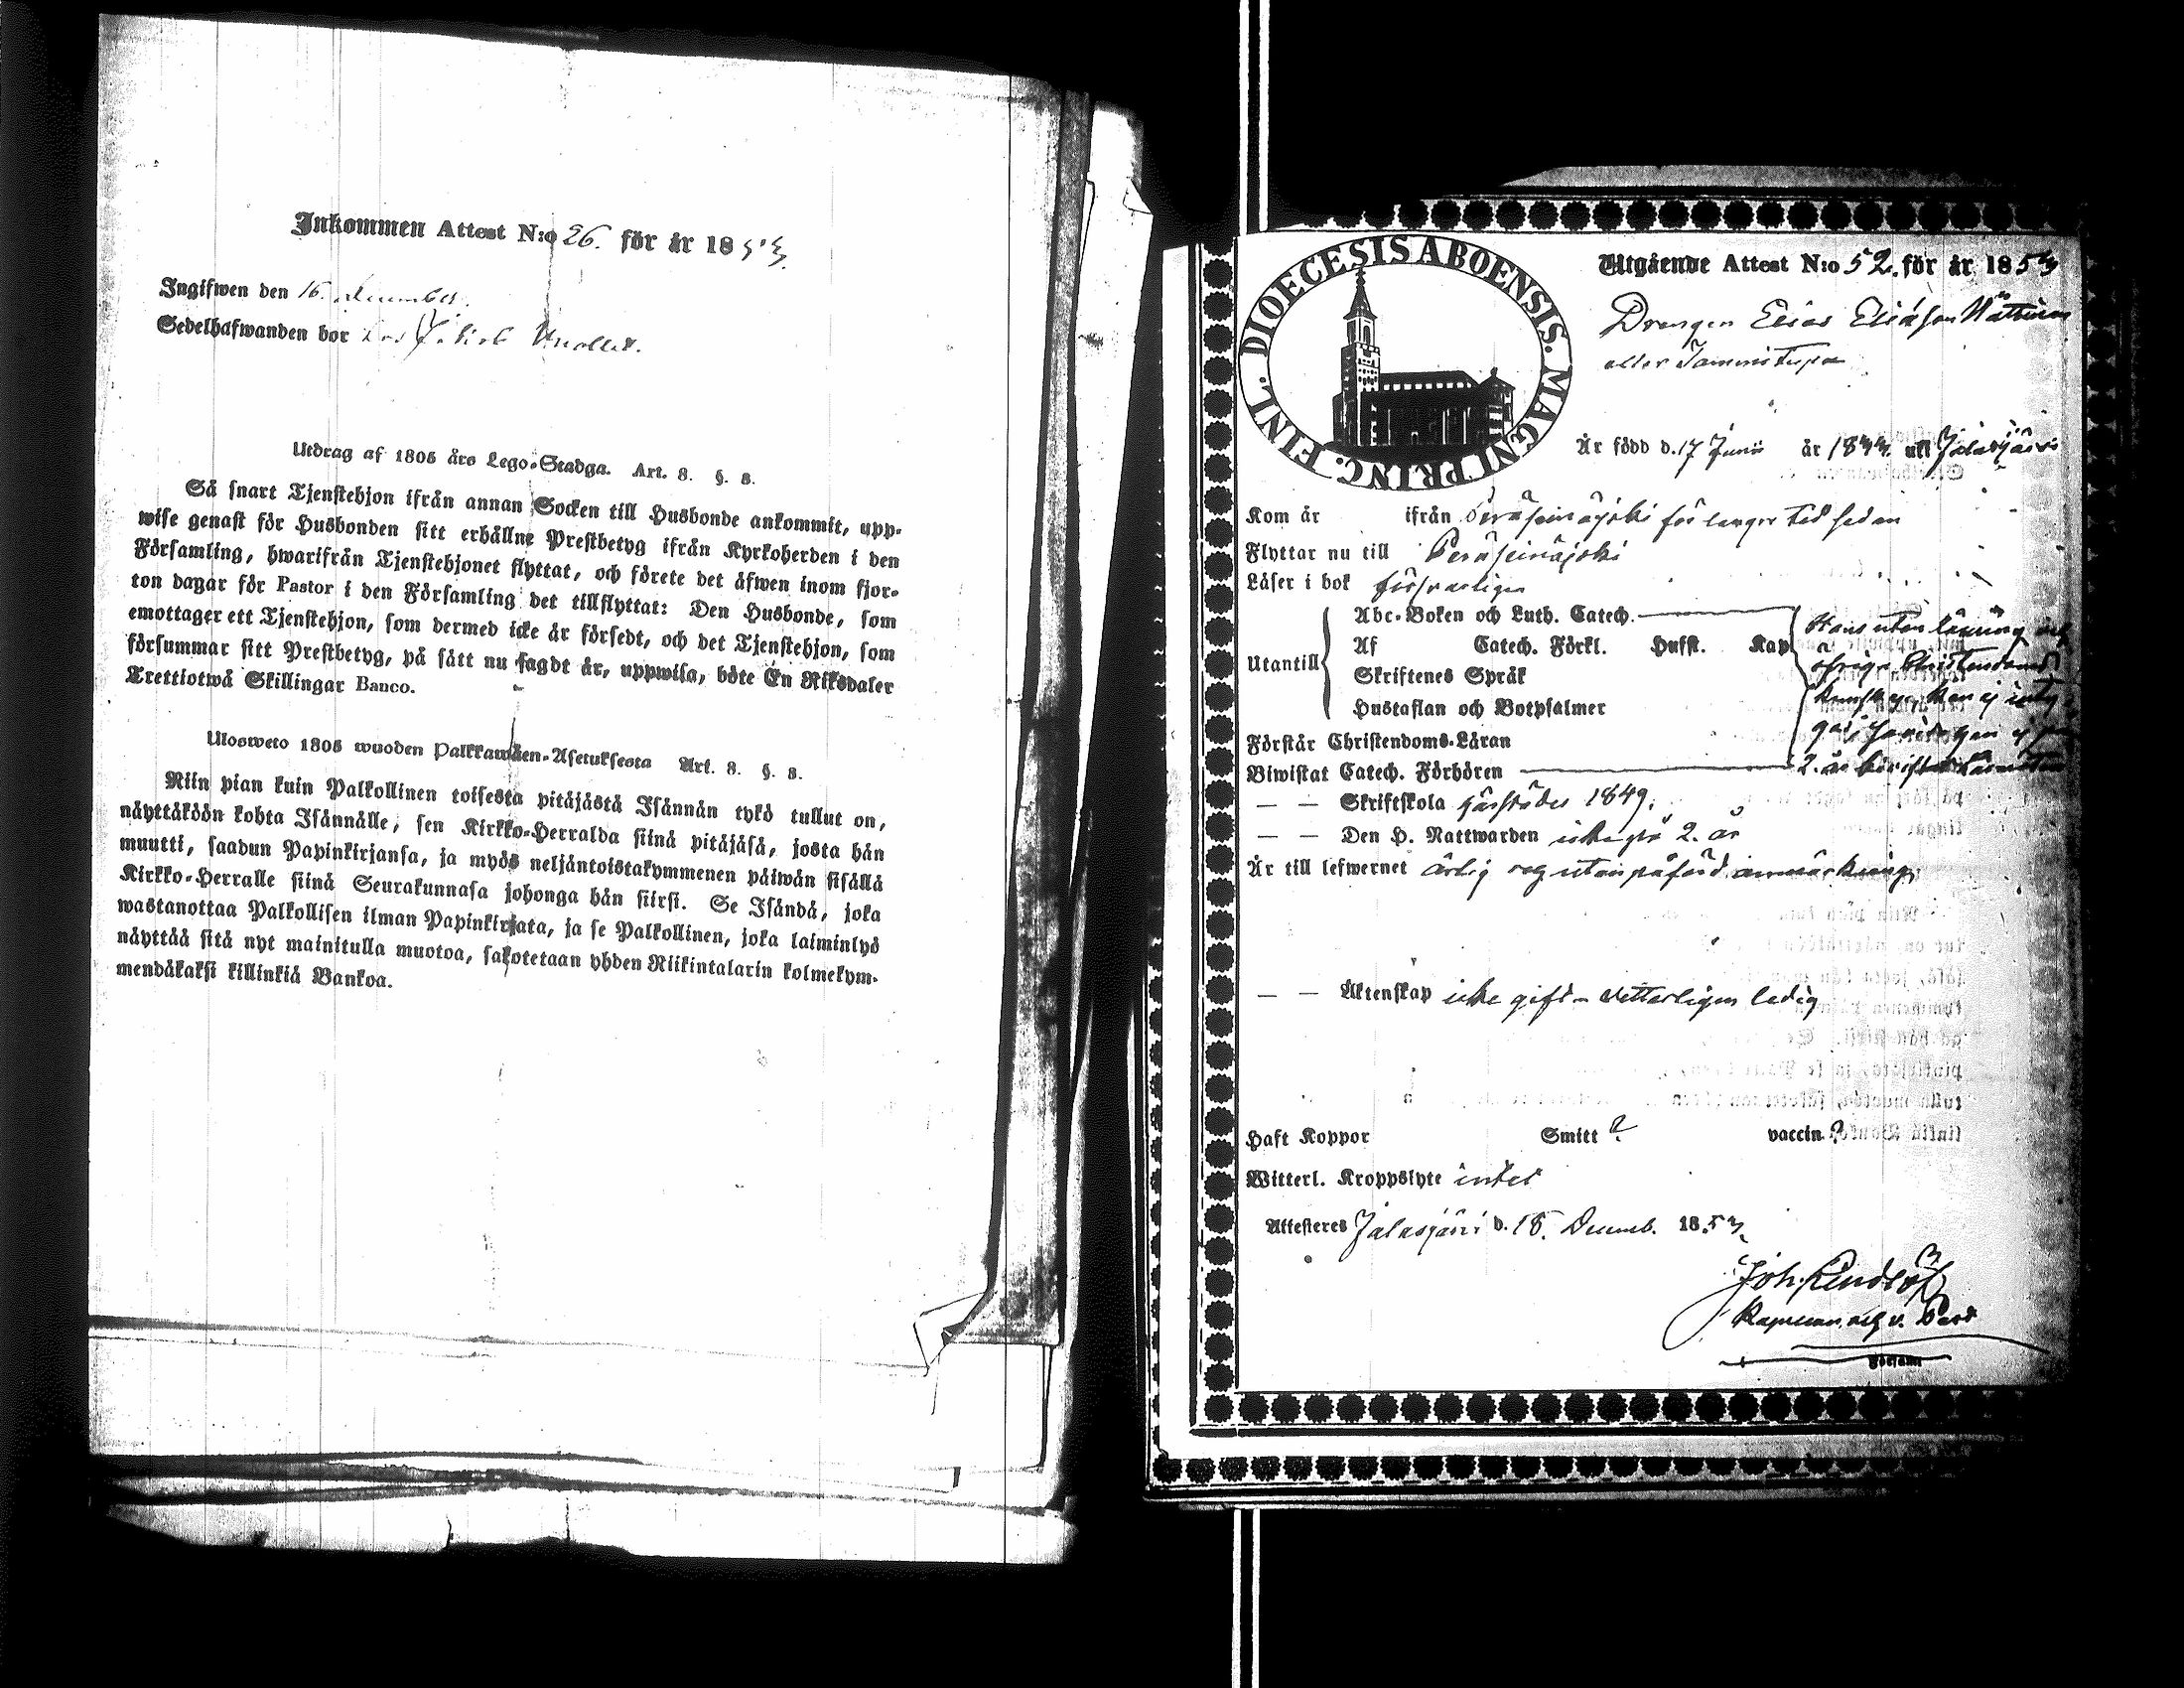 Inkommen Attest N:o 26. för år 1853.
Ingifwen den 16. december.
Sedelhafwanden bor hos
Utdrag af 1805 års Lego-Stadga. Art. 8. §. 8.
Så snart Tjenstehjon ifrån annan Socken till Husbonde ankommit, upp-
wise genast för Husbonden sitt erhållne Prestbetyg ifrån Kyrkoherden i den
Församling, hwarifrån Tjenstehjonet flyttat, och förete det äfwen inom fjor-
ton dagar för Pastor i den Församling det tillflyttat: Den Husbonde, som
emottager ett Tjenstehjon, som dermed icke är försedt, och det Tjenstehjon, som
försummar sitt Prestbetyg, på sätt nu sagdt är, uppwisa, böte En Riksdaler
Trettiotwå Skillingar Banco.
Ulosweto 1805 wuoden Palkkawäen-Asetuksesta Art. 8. §. 8.
Niin pian kuin Palkollinen toisesta pitäjästä Isännän tykö tullut on,
näyttäköön kohta Isännälle, sen Kirkko-Herralda siinä pitäjäsä, josta hän
muutti, saadun Papinkirjansa, ja myös neljäntoistakymmenen päiwän sisällä
Kirkko-Herralle siinä Seurakunnasa johonga hän siirsi. Se Isändä, joka
wastanottaa Palkollisen ilman Papinkirjata, ja se Palkollinen, joka laiminlyö
näyttää sitä nyt mainitulla muotoa, sakotetaan yhden Riikintalarin kolmekym-
mendäkaksi killinkiä Bankoa.
DIOECESIS ABOENSIS. MAGNI PRINC. FINL.
Utgående Attest N:o 52. för år 1853
Drengen Elias Eliasson
eller Tammistupa
Är född d. 17 Junii år 1833 uti Jalasjärvi
Kom år ifrån Peräseinäjoki för längre tid sedan
Flyttar nu till Peräseinäjoki
Läser i bok försvarligen
Utantill
Abc-Boken och Luth. Catech.
Af Catech. Förkl. Husst. Kap
Skriftenes Språk
Hustaflan och Botpsalmer
Hans utan läsning och
öfriga Christendoms
kunskap kan ej
2. år
Förstår Christendoms-Läran
Biwistat Catech. Förhören
— — Skriftskola 1849.
— — Den H. Nattwarden icke på 2. år
Är till lefwernet ärlig och utan påförd anmärkning
— — Äktenskap icke gift – vetterligen ledig
Haft Koppor Smitt ? vaccin. ?
Witterl. Kroppslyte intet
Attesteras Jalasjärvi d. 15. Decemb. 1853.
Joh. Lindlöf
Kapellan och v. Past
Församl